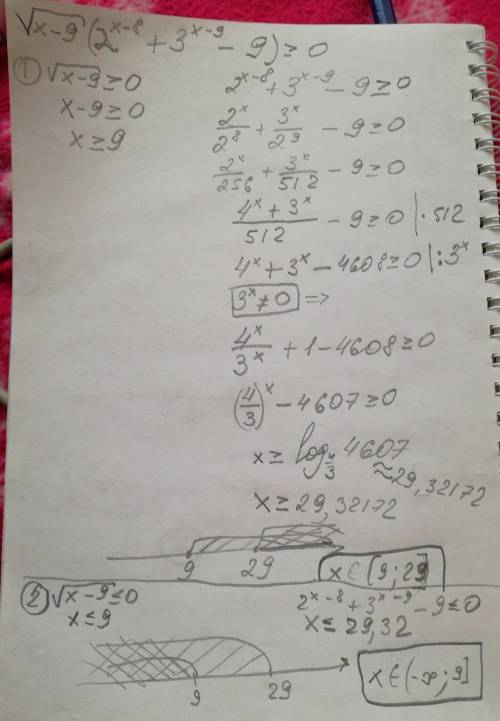 √x-9 (2^(x-8) + 3^(x-9) - 9) ≥ 0
① √x-9 ≥ 0
x-9 ≥ 0
x ≥ 9
2^(x-8) + 3^(x-9) - 9 ≥ 0
2^x/2^8 + 3^x/2^9 - 9 ≥ 0
2^x/256 + 3^x/512 - 9 ≥ 0
(4^x + 3^x)/512 - 9 ≥ 0 | · 512
4^x + 3^x - 4608 ≥ 0 | : 3^x
3^x ≠ 0 =>
4^x/3^x + 1 - 4608 ≥ 0
(4/3)^x - 4607 ≥ 0
x ≥ log_(4/3) 4607 ≈ 29,32172
x ≥ 29,32172
9 29 x ∈ [9; 29]
② √x-9 ≤ 0
x ≤ 9
2^(x-8) + 3^(x-9) - 9 ≤ 0
x ≤ 29,32
9 29
x ∈ (-∞; 9]